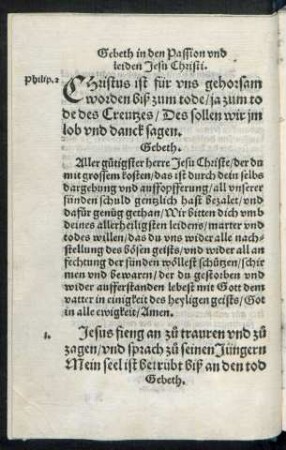 Gebeth in den Passion vnd
leiden Jesu Christi.
Philip. 2
CHristus ist für vns gehorsam
worden biß zum tode / ja zum to
de des Creutzes / Des sollen wir jm
lob vnd danck sagen.
Gebeth.
Aller gütigster herre Jesu Christe / der du
mit grossem kosten / das ist durch dein selbs
dargebung vnd auffopfferung / all vnserer
sünden schuld genglich hast bezalet / vnd
dafür genůg gethan / Wir bitten dich vmb
deines allerheiligsten leidens / marter vnd
todes willen / das du vns wider alle nach-
stellung des bösen geists / vnd wider all an
fechtung der sünden wöllest schützen / schir
men vnd bewaren / der du gestorben vnd
wider aufferstanden lebest mit Gott dem
vatter in einigkeit des heyligen geists / Got
in alle ewigkeit / Amen.
1. Jesus fieng an zů trauren vnd zů
zagen / vnd sprach zů seinen Jüngern
Mein seel ist betrübt biß an den tod
Gebeth.